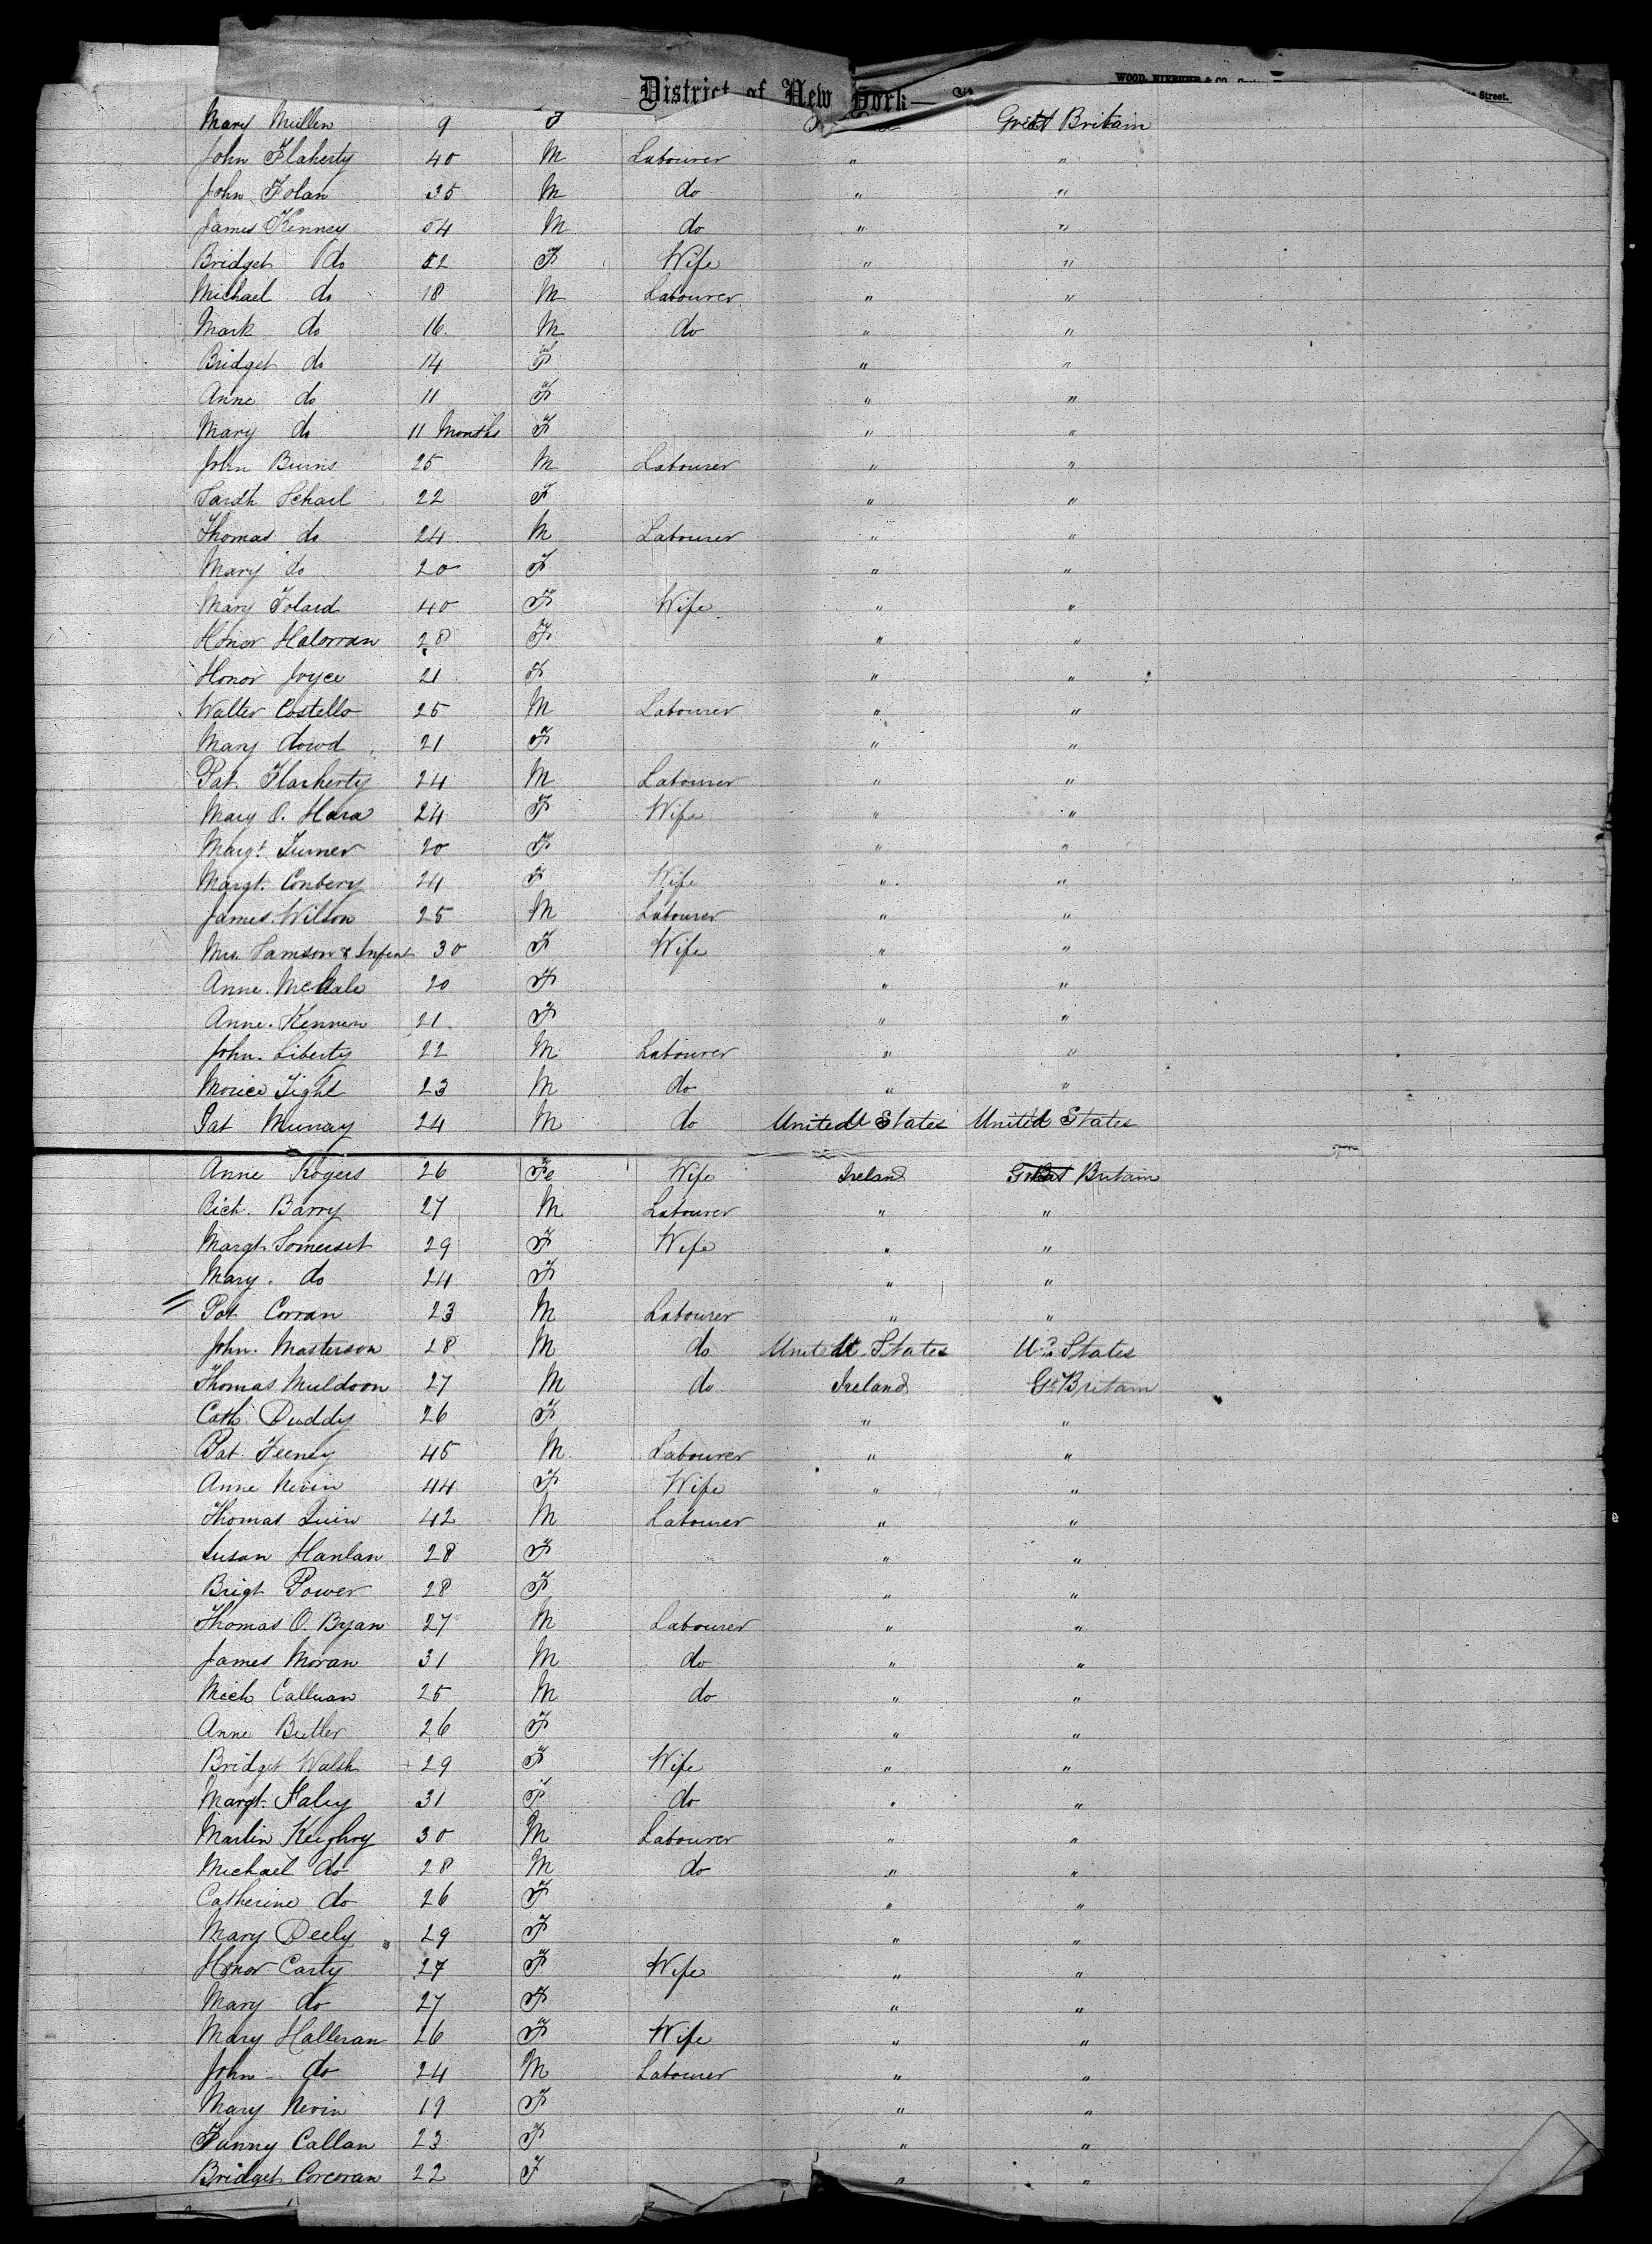 District of New York—
WOOD, NIEBUHR & CO.
Street.
Mary Mullen 9 F Great Britain
John Flaherty 40 M Labourer " "
John Folan 35 M do " "
James Kenney 54 M do " "
Bridget do 52 F Wife " "
Michael do 18 M Labourer " "
Mark do 16 M do " "
Bridget do 14 F " "
Anne do 11 F " "
Mary do 11 Months F " "
John Burns 25 M Labourer " "
Sarah Schail 22 F " "
Thomas do 24 M Labourer " "
Mary do 20 F " "
Mary Folard 40 F Wife " "
Honor Halorran 28 F " "
Honor Joyce 21 F " "
Walter Costello 25 M Labourer " "
Mary dowd 21 F " "
Pat. Flarherty 24 M Labourer " "
Mary O. Hara 24 F Wife " "
Margt. Turner 20 F " "
Margt. Conbery 24 F Wife " "
James. Wilson 25 M Labourer " "
Mrs. Samson & Infant 30 F Wife " "
Anne. McHale 20 F " "
Anne. Kennen 21 F " "
John. Liberty 22 M Labourer " "
Morice Tight 23 M do " "
Pat Murray 24 M do United States United States
Anne Rogers 26 Fe Wife Ireland Great Britain
Rich. Barry 27 M Labourer " "
Margt. Somerset 29 F Wife " "
Mary. do 24 F " "
Pat Corran 23 M Labourer " "
John. Masterson 28 M do United States Ud. States
Thomas Muldoon 27 M do Ireland Gt Britain
Cath Duddy 26 F " "
Pat. Feeney 45 M Labourer " "
Anne Nevin 44 F Wife " "
Thomas Quin 42 M Labourer " "
Susan Hanlan 28 F " "
Brigt Power 28 F " "
Thomas O. Byan 27 M Labourer " "
James Moran 31 M do " "
Mich Calluan 25 M do " "
Anne Butler 26 F " "
Bridget Walsh 29 F Wife " "
Margt. Faley 31 F do " "
Martin Keighry 30 M Labourer " "
Michael do 28 M do " "
Catherine do 26 F " "
Mary Deely 29 F " "
Honor Carty 27 F Wife " "
Mary do 27 F " "
Mary Halleran 26 F Wife " "
John do 24 M Labourer " "
Mary Nevin 19 F " "
Fanny Callan 23 F " "
Bridget Corcoran 22 F " "